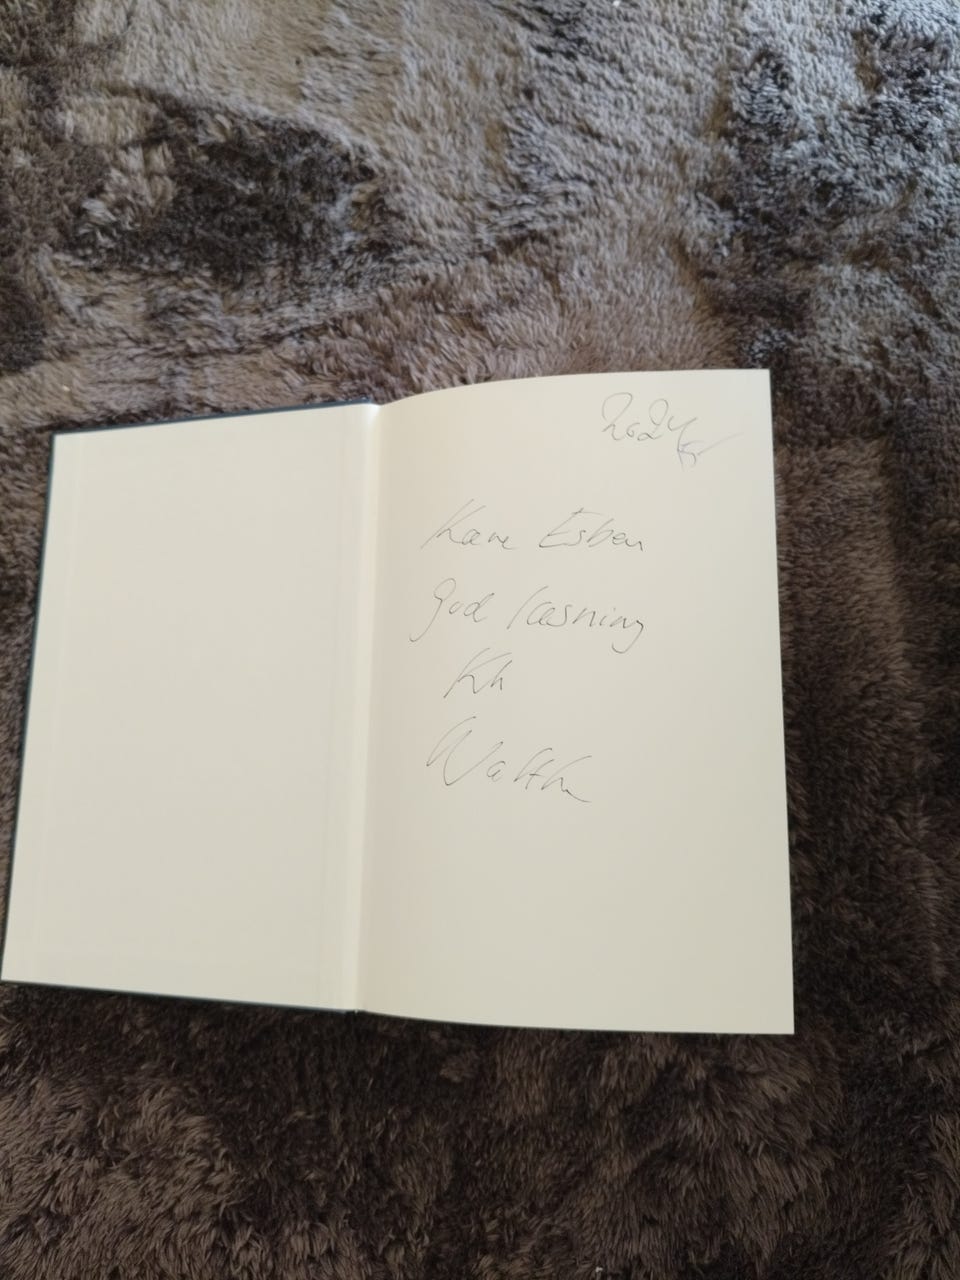 2024
Kære Esben
god læsning
Kh